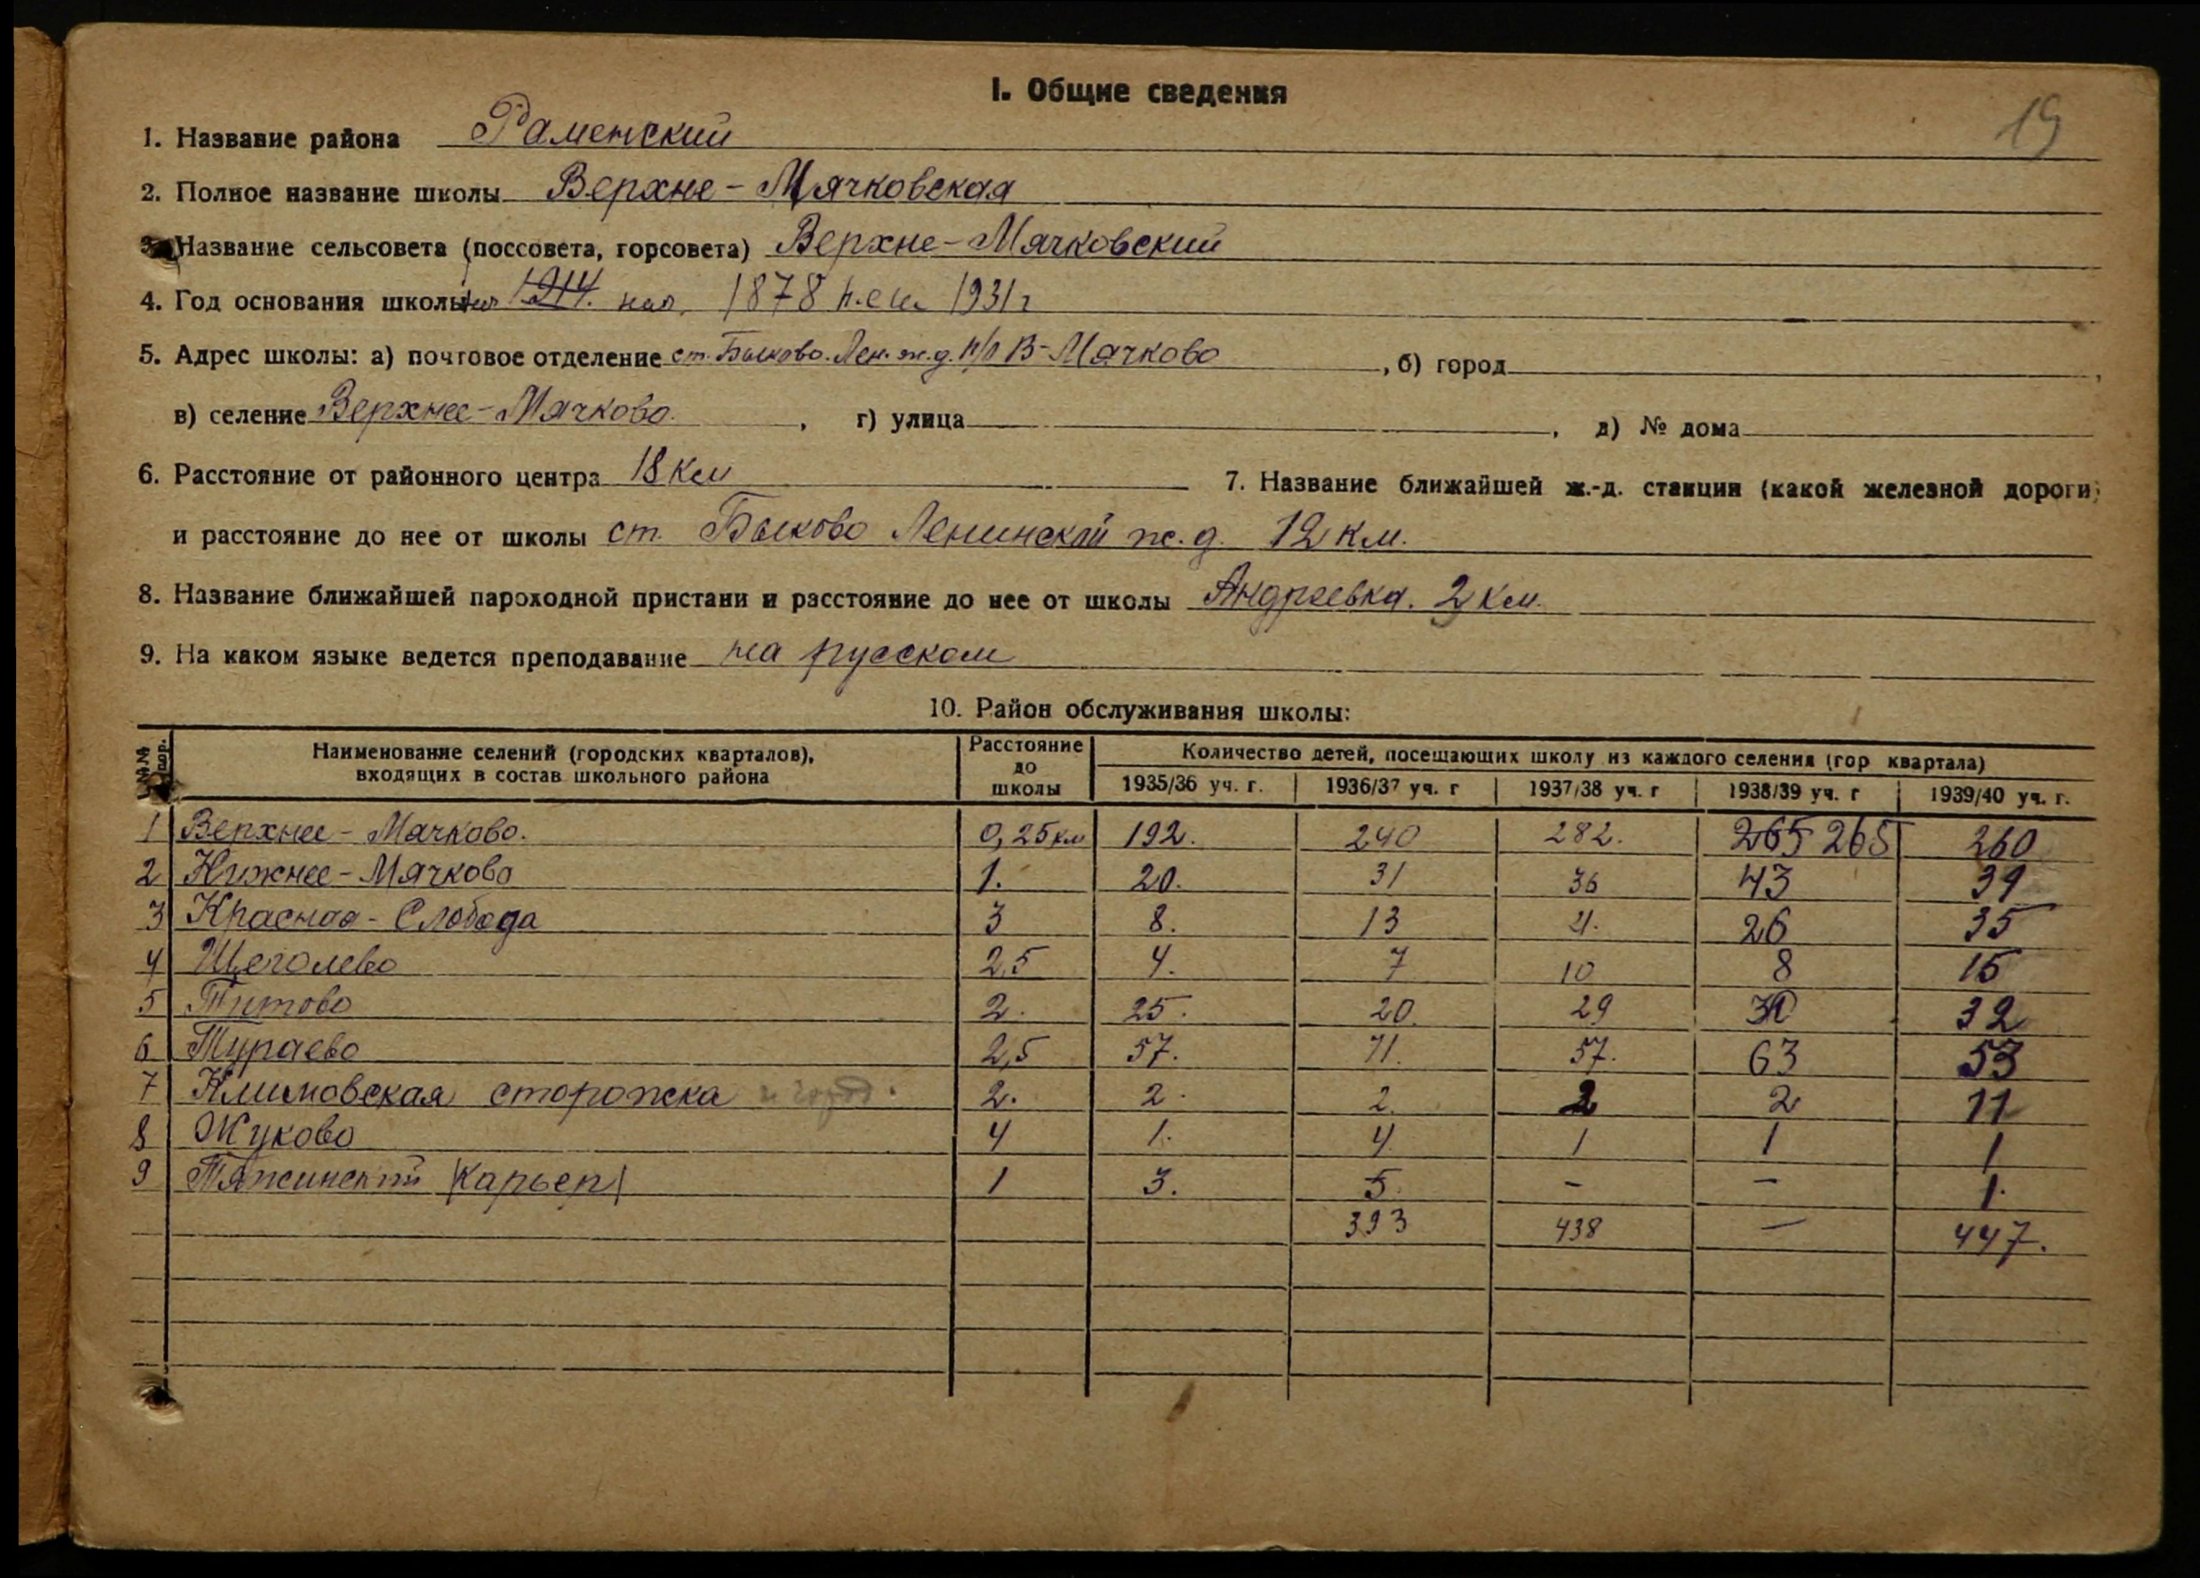 I. Общие сведения
19
1. Название района Раменский
2. Полное название школы Верхне-Мячковская
Название сельсовета (поссовета, горсовета) Верхне-Мячковский
4. Год основания школы 1914. нач. 1878 н.с.ш. 1931г
5. Адрес школы: а) почтовое отделение ст. Быково. Лен. ж.д. п/о В-Мячково, б) город
в) селение Верхнее-Мячково. , г) улица , д) № дома
6. Расстояние от районного центра 18 км 7. Название ближайшей ж.-д. станции (какой железной дороги)
и расстояние до нее от школы ст. Быково Ленинской ж.д. 12 км.
8. Название ближайшей пароходной пристани и расстояние до нее от школы Андреевка. 2 км.
9. На каком языке ведется преподавание на русском
10. Район обслуживания школы:
№№ пор. Наименование селений (городских кварталов), входящих в состав школьного района Расстояние до школы Количество детей, посещающих школу из каждого селения (гор квартала)
1935/36 уч. г. 1936/37 уч. г 1937/38 уч. г 1938/39 уч. г 1939/40 уч. г.
1 Верхнее-Мячково. 0,25 км 192. 240 282. 265 265 260
2 Нижнее-Мячково 1. 20. 31 36 43 39
3 Красная-Слобода 3 8. 13 21. 26 35
4 Щеголево 2,5 4. 7 10 8 15
5 Титово 2. 25. 20. 29 30 32
6 Тураево 2,5 57. 71. 57. 63 53
7 Климовская сторожка 2. 2. 2. 2 2 11
8 Жуково 4 1. 4. 1 1 1
9 Тяжинский (карьер) 1 3. 5. – – 1.
393 438 – 447.